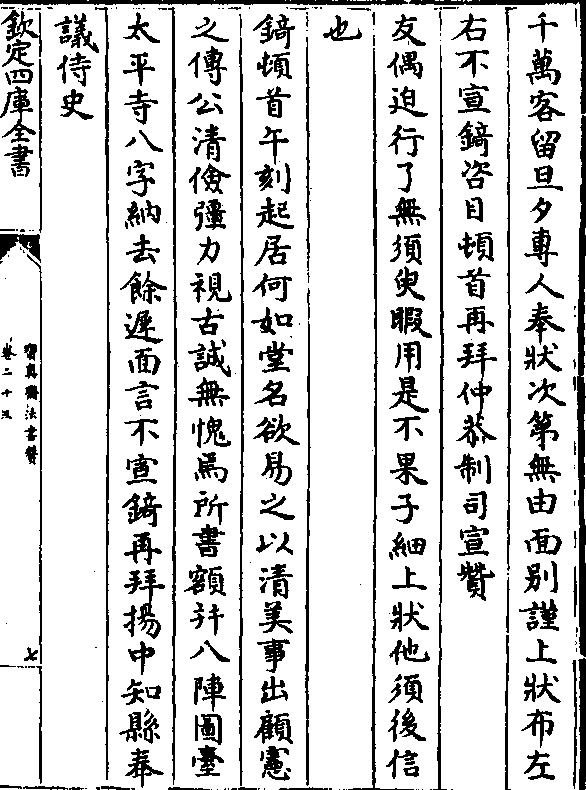 千萬客留旦夕專人奉狀次第無由面别謹上狀布左
右不宣錡咨目頓首再拜仲恭制司宣贊
友偶迫行了無須臾暇用是不果子細上狀他須後信
也
錡頓首午刻起居何如堂名欲易之以清美事出顧憲
之傳公清儉彊力視古誠無愧焉所書額并八陣圖臺
太平寺八字納去餘遲面言不宣錡再拜揚中知縣奉
議侍史
欽定四庫全書
寳真齋法書贊
卷二十
七